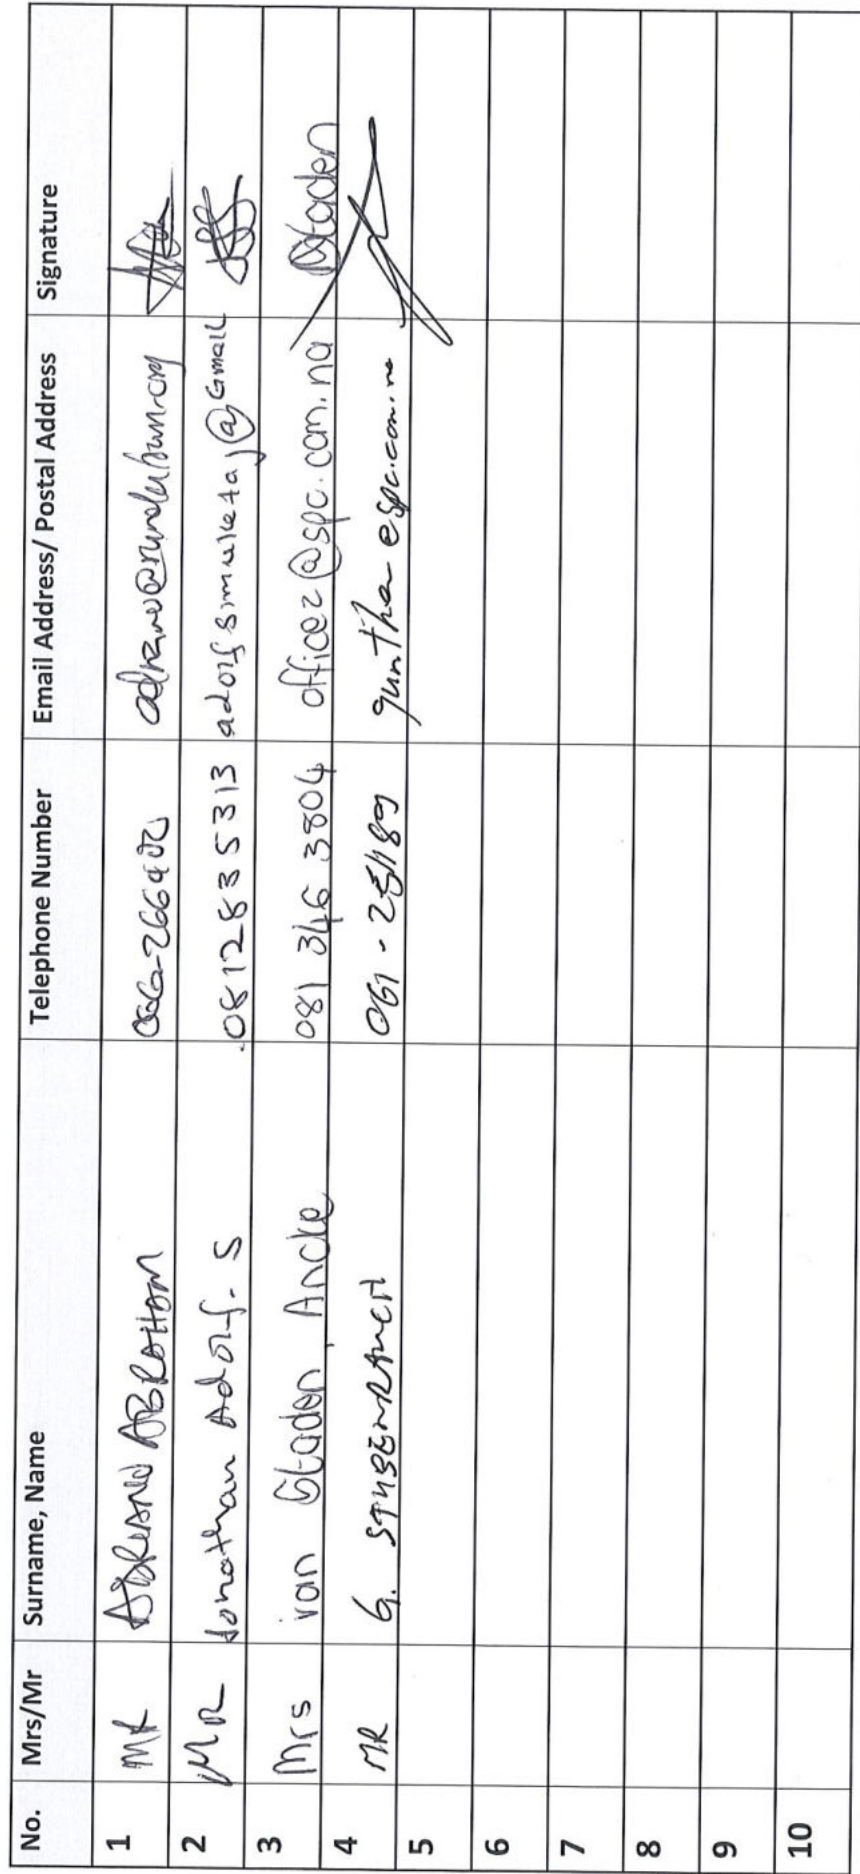 No. Mrs/Mr Surname, Name Telephone Number Email Address/ Postal Address Signature
1 MR ADRIANO ABRAHAM
2 MR Jonathan Adolf. S 0812835313 adolfsimuketa,@Gmail
3 Mrs van Staden, Ancke 081 346 3804 office2@spc.com.na Staden
4 MR G. STUBENRAUCH gunther@spc.com.na
5
6
7
8
9
10